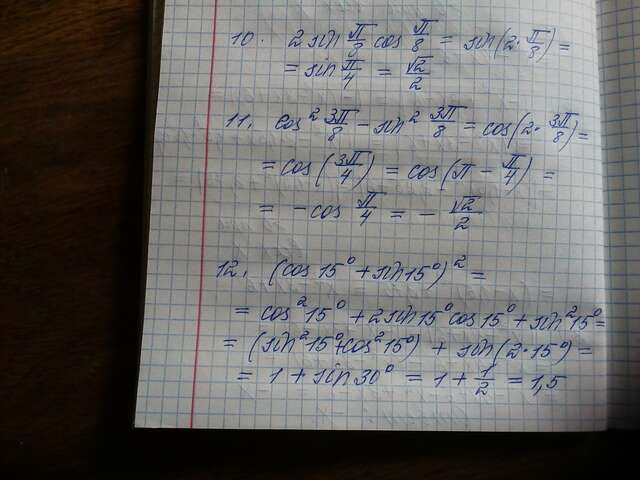 10. 2 sin π/8 cos π/8 = sin(2·π/8) =
= sin π/4 = √2/2
11. cos² 3π/8 - sin² 3π/8 = cos(2·3π/8) =
= cos(3π/4) = cos(π - π/4) =
= -cos π/4 = -√2/2
12. (cos 15° + sin 15°)² =
= cos² 15° + 2 sin 15° cos 15° + sin² 15° =
= (sin² 15° + cos² 15°) + sin(2·15°) =
= 1 + sin 30° = 1 + 1/2 = 1,5